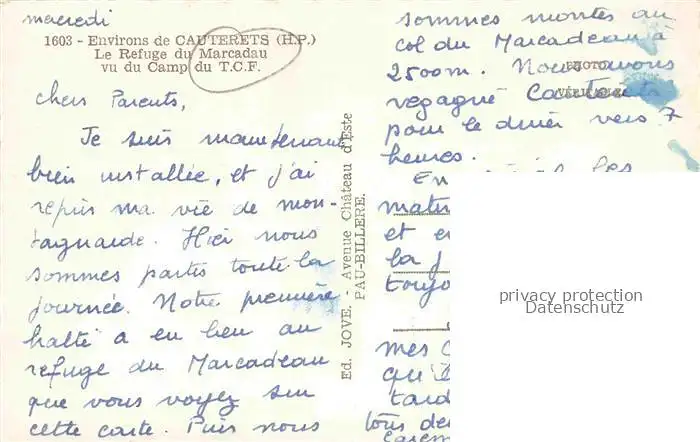 mercredi
1603 - Environs de CAUTERETS (H.P.)
Le Refuge du Marcadau
vu du Camp du T.C.F.
chers Parents,
Je suis maintenant
bien installée, et j'ai
repris ma vie de mon-
tagnarde. Hier nous
sommes partis toute la
journée. Notre première
halte a eu lieu au
refuge du Marcadeau
que vous voyez sur
cette carte. Puis nous
Ed. JOVE. - Avenue Château d'Este
PAU-BILLERE.
sommes montés au
col du Marcadeau à
2500m. Nous avons
PHOTO
VERITABLE
regagné Cauterets
pour le dîner vers 7
heures.
En les
matin
et e
la j
toujo
mes c
qu'il
tard
tous de
carem
privacy protection
Datenschutz